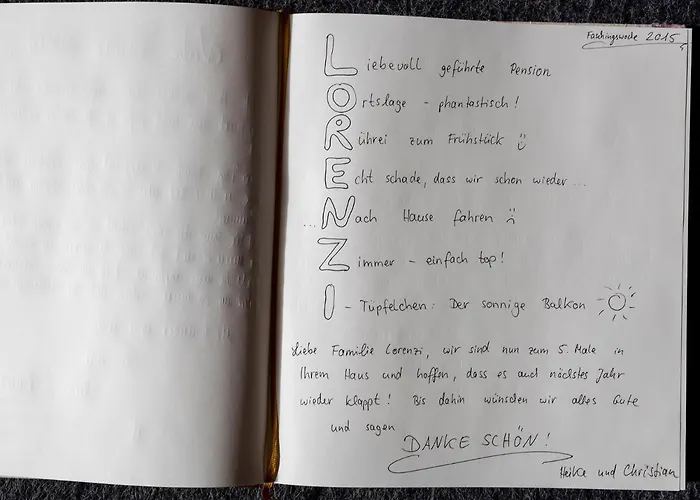 Faschingswoche 2015
Liebevoll geführte Pension
Ortslage - phantastisch!
Rührei zum Frühstück
Echt schade, dass wir schon wieder ...
... Nach Hause fahren
Zimmer - einfach top!
I - Tüpfelchen: Der sonnige Balkon
Liebe Familie Lorenzi, wir sind nun zum 5. Male in
Ihrem Haus und hoffen, dass es auch nächstes Jahr
wieder klappt! Bis dahin wünschen wir alles Gute
und sagen
DANKE SCHÖN!
Heike und Christian